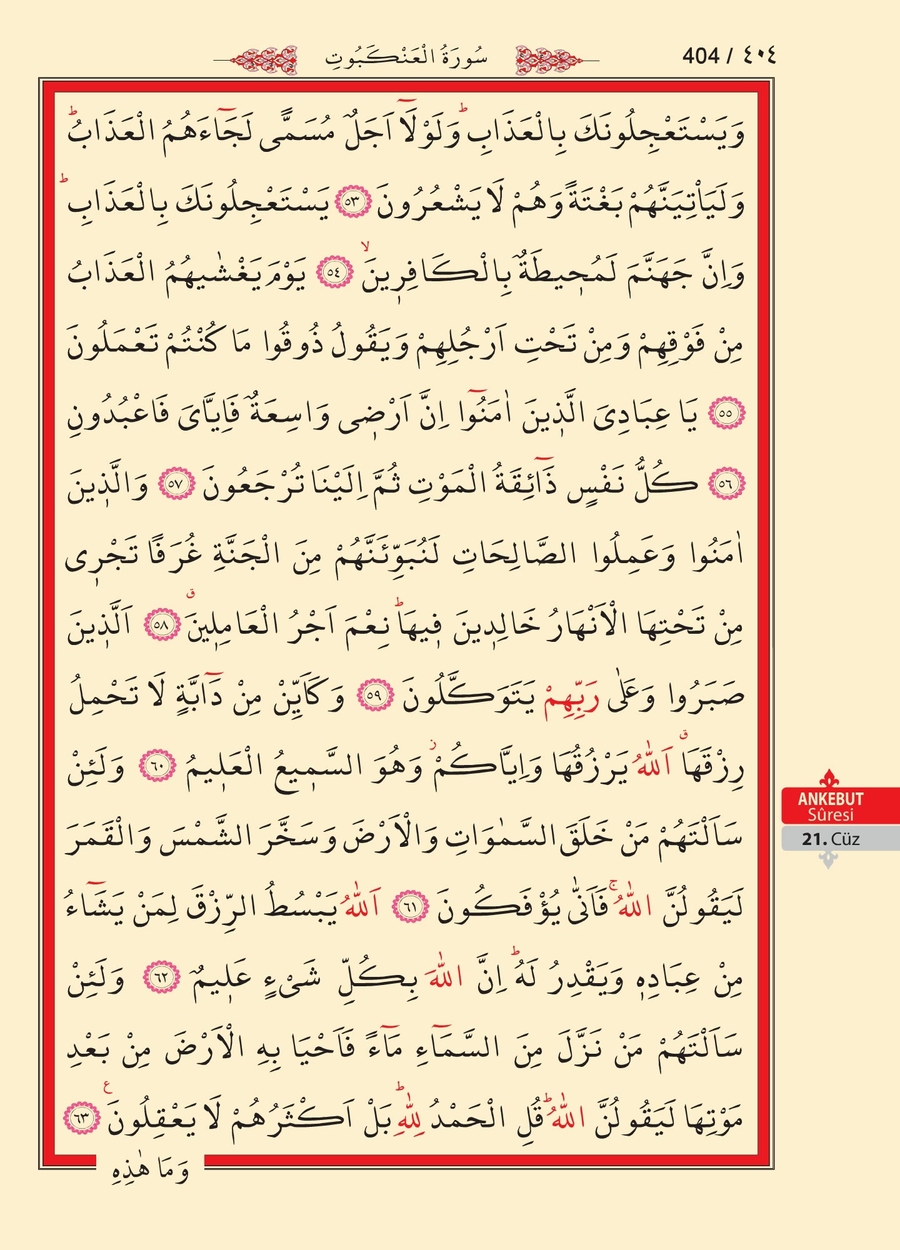 سُورَةُ الْعَنْكَبُوتِ
404 / ٤٠٤
وَيَسْتَعْجِلُونَكَ بِالْعَذَابِ ۜ وَلَوْلَٓا اَجَلٌ مُسَمًّى لَجَٓاءَهُمُ الْعَذَابُ ۜ
وَلَيَأْتِيَنَّهُمْ بَغْتَةً وَهُمْ لَا يَشْعُرُونَ ﴿٥٣﴾ يَسْتَعْجِلُونَكَ بِالْعَذَابِ ۜ
وَاِنَّ جَهَنَّمَ لَمُح۪يطَةٌ بِالْكَافِر۪ينَ ۙ ﴿٥٤﴾ يَوْمَ يَغْشٰيهُمُ الْعَذَابُ
مِنْ فَوْقِهِمْ وَمِنْ تَحْتِ اَرْجُلِهِمْ وَيَقُولُ ذُوقُوا مَا كُنْتُمْ تَعْمَلُونَ
﴿٥٥﴾ يَا عِبَادِيَ الَّذ۪ينَ اٰمَنُٓوا اِنَّ اَرْض۪ي وَاسِعَةٌ فَاِيَّايَ فَاعْبُدُونِ
﴿٥٦﴾ كُلُّ نَفْسٍ ذَٓائِقَةُ الْمَوْتِ ثُمَّ اِلَيْنَا تُرْجَعُونَ ﴿٥٧﴾ وَالَّذ۪ينَ
اٰمَنُوا وَعَمِلُوا الصَّالِحَاتِ لَنُبَوِّئَنَّهُمْ مِنَ الْجَنَّةِ غُرَفًا تَجْر۪ي
مِنْ تَحْتِهَا الْاَنْهَارُ خَالِد۪ينَ ف۪يهَا ۜ نِعْمَ اَجْرُ الْعَامِل۪ينَ ۗ ﴿٥٨﴾ اَلَّذ۪ينَ
صَبَرُوا وَعَلٰى رَبِّهِمْ يَتَوَكَّلُونَ ﴿٥٩﴾ وَكَاَيِّنْ مِنْ دَٓابَّةٍ لَا تَحْمِلُ
رِزْقَهَا ۗ اَللّٰهُ يَرْزُقُهَا وَاِيَّاكُمْ ۘ وَهُوَ السَّم۪يعُ الْعَل۪يمُ ﴿٦٠﴾ وَلَئِنْ
سَاَلْتَهُمْ مَنْ خَلَقَ السَّمٰوَاتِ وَالْاَرْضَ وَسَخَّرَ الشَّمْسَ وَالْقَمَرَ
لَيَقُولُنَّ اللّٰهُ ۚ فَاَنّٰى يُؤْفَكُونَ ﴿٦١﴾ اَللّٰهُ يَبْسُطُ الرِّزْقَ لِمَنْ يَشَٓاءُ
مِنْ عِبَادِه۪ وَيَقْدِرُ لَهُ ۜ اِنَّ اللّٰهَ بِكُلِّ شَيْءٍ عَل۪يمٌ ﴿٦٢﴾ وَلَئِنْ
سَاَلْتَهُمْ مَنْ نَزَّلَ مِنَ السَّمَٓاءِ مَٓاءً فَاَحْيَا بِهِ الْاَرْضَ مِنْ بَعْدِ
مَوْتِهَا لَيَقُولُنَّ اللّٰهُ ۜ قُلِ الْحَمْدُ لِلّٰهِ ۜ بَلْ اَكْثَرُهُمْ لَا يَعْقِلُونَ ۟ ﴿٦٣﴾
وَمَا هٰذِهِ
ANKEBUT
Sûresi
21. Cüz